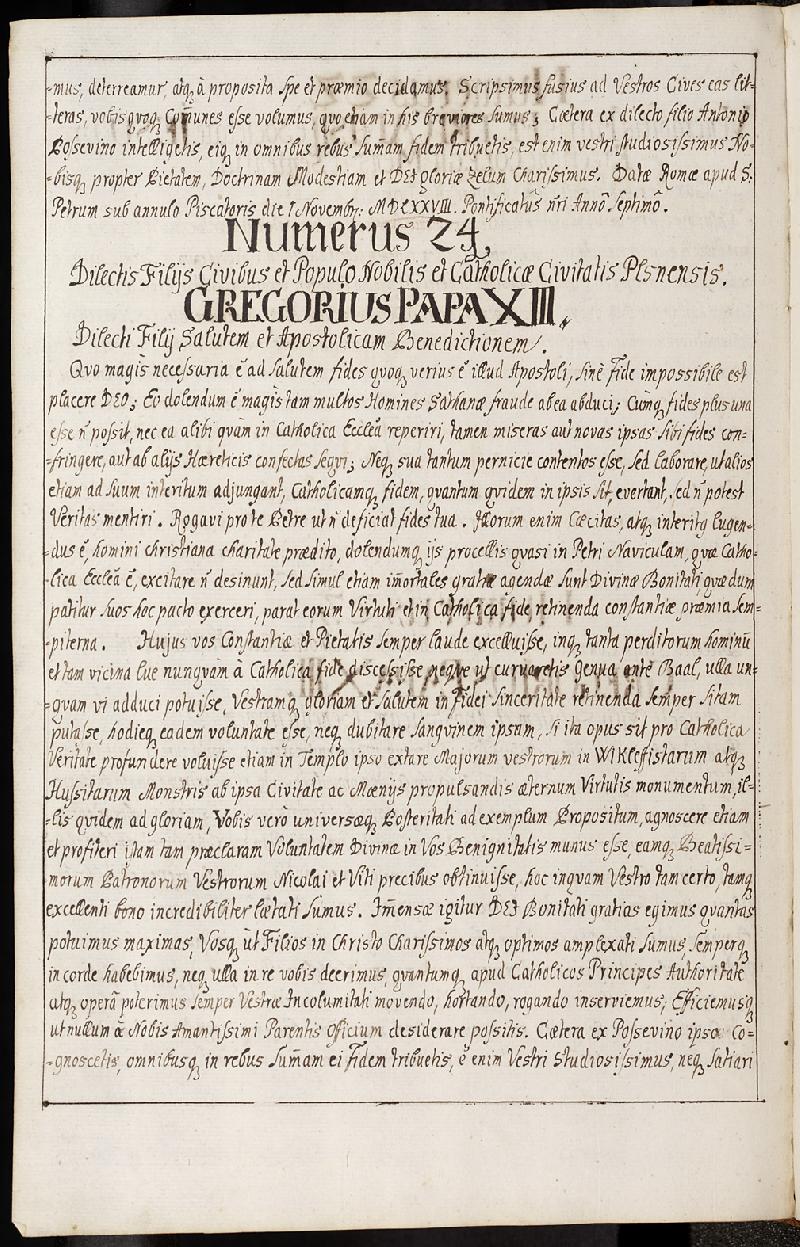 -mus, deterreamur, atq₃ à proposita spe et præmio decidamus. Scripsimus fusius ad Vestros Cives eas lit-
-teras, vobis qvoq₃ Comunes esse volumus, qvo etiam in his breviores sumus; Cætera ex dilecto filio Antonio
Possevino intelligetis, eiq₃ in omnibus rebus Sum̄am fidem tribuetis, est enim vestri studiosissimus No-
-bisq₃ propter Pietatem, Doctrinam Modestiam et DEI gloriæ zelum Charissimus. Datæ Romæ apud S:
Petrum sub annulo Piscatoris die 1 Novembr: MDLXXVIII. Pontificatus n̄ri Annō Septimō.
Numerus 24.
Dilectis Filijs Civibus et Populo Nobilis et Catholicæ Civitatis Plsnensis.
GREGORIUS PAPA XIII.
Dilecti Filij Salutem et Apostolicam Benedictionem.
Qvo magis necessaria ē ad Salutem fides qvoq₃ verius ē illud Apostoli, sinē Fide impossibile est
placere DEO; Eo dolendum ē magis tam multos Homines Sathanæ fraude ab ea abduci; Cumq₃ fides plus una
esse n̄ possit, nec ea alibi qvam in Catholica Ecclēa reperiri, tamen miseras aut novas ipsas sibi fides con-
-fringere, aut ab alijs Hæreticis confectas seqvi; Neq₃ sua tantum pernicie contentos esse, sed laborare, ut alios
etiam ad suum interitum adjungant, Catholicamq₃ fidem, qvantum qvidem in ipsis sit, evertant, sed n̄ potest
Veritas mentiri. Rogavi pro te Petre ut n̄ deficiat fides tua. Illorum enim Cæcitas, atq₃ interitq lugen-
-dus ē, homini christiana charitate prædito, dolendumq₃ ijs procellis qvasi in Petri Naviculam, qvæ Catho-
-lica Ecclēa ē, excitare n̄ desinunt, Sed simul etiam im̄ortales gratiæ agendæ sunt Divinæ Bonitati qvæ dum
patitur suos hoc pacto exerceri, parat eorum Virtuti et in Catholica fide retinenda constantiæ præmia sem-
-piterna. Hujus vos Constantiæ et Pietatis semper laude excelluisse, inq₃ tanta perditorum hominū
et tam vicina lue nunqvam à Catholica fide discessisse neqve ut curvaretis genua ante Baal, ulla un-
-qvam vi adduci potuisse, Vestramq₃ gloriam et Salutem in Fidei sinceritate retinenda semper sitam
putasse, hodieq₃ eadem voluntate esse, neq₃ dubitare sangvinem ipsum, si ita opus sit pro Catholica
Veritate profundere voluisse etiam in Templo ipso extare Majorum vestrorum in WIKleffistarum atq₃
Hussitarum Monstris ab ipsa Civitate ac Mœnijs propulsandis æternum Virtutis monumentum, il-
-lis qvidem ad gloriam, Vobis verò universæq₃ Posteritati ad exemplum Propositum, agnoscere etiam
et profiteri istam tam præclaram Voluntatem Divinæ in Vos Benignitatis munus esse, eamq₃ Beatissi-
morum Patronorum Vestrorum Nicolai et Viti precibus obtinuisse, hoc inqvam Vestro tam certo, tamq₃
excellenti bono incredibiliter lætati sumus. Im̄ensæ igitur DEI Bonitati gratias egimus qvantas
potuimus maximas, Vosq₃ ut Filios in Christo Charissimos atq₃ optimos amplexati sumus, semperq₃
in corde habebimus, neq₃ ulla in re vobis deerimus, qvantumq₃ apud Catholicos Principes Authoritate
atq₃ operâ poterimus semper Vestræ Incolumitati movendo, hortando, rogando inserviemus, Efficiemusq₃
ut nullum à Nobis Amantissimi Parentis Officium desiderare possitis. Cætera ex Possevino ipso Co-
-gnoscetis, omnibusq₃ in rebus Sum̄am ei Fidem tribuetis, ē enim Vestri Studiosissimus, neq₃ satiari